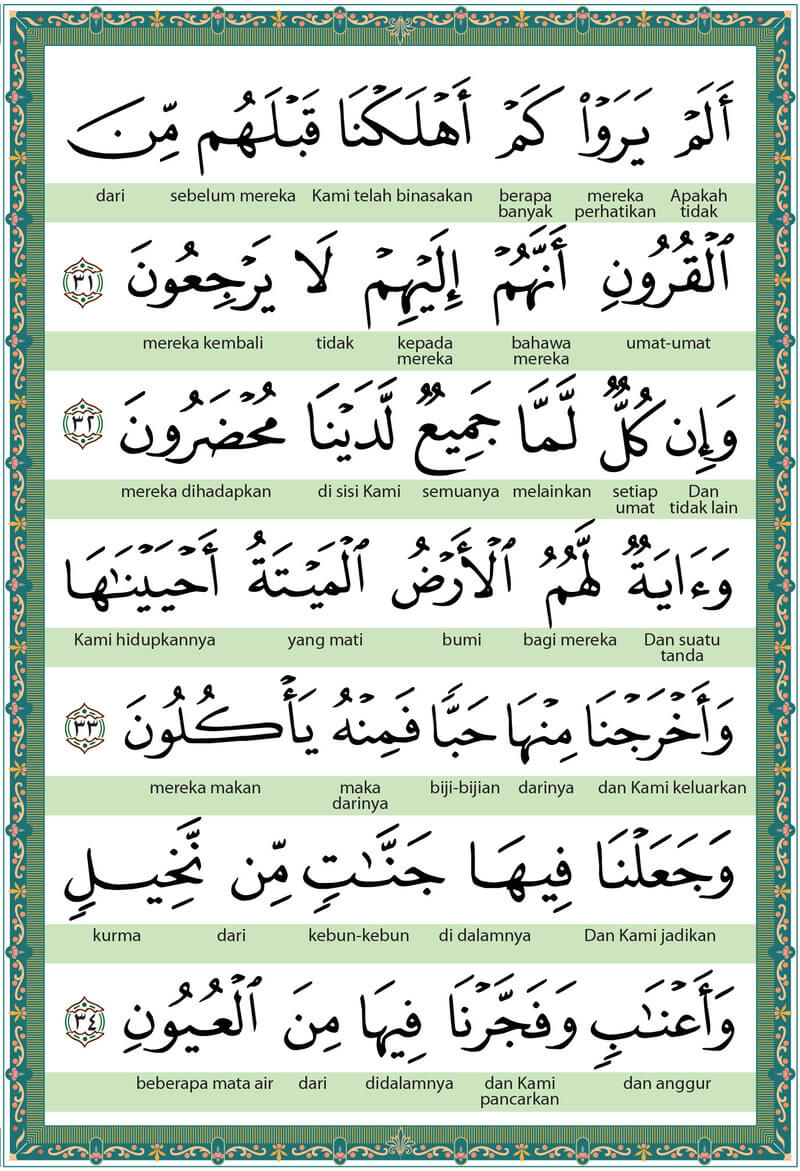 أَلَمۡ يَرَوۡاْ كَمۡ أَهۡلَكۡنَا قَبۡلَهُم مِّنَ
Apakah tidak mereka perhatikan berapa banyak Kami telah binasakan sebelum mereka dari
ٱلۡقُرُونِ أَنَّهُمۡ إِلَيۡهِمۡ لَا يَرۡجِعُونَ ٣١
umat-umat bahawa mereka kepada mereka tidak mereka kembali
وَإِن كُلّٞ لَّمَّا جَمِيعٞ لَّدَيۡنَا مُحۡضَرُونَ ٣٢
Dan tidak lain setiap umat melainkan semuanya di sisi Kami mereka dihadapkan
وَءَايَةٞ لَّهُمُ ٱلۡأَرۡضُ ٱلۡمَيۡتَةُ أَحۡيَيۡنَٰهَا
Dan suatu tanda bagi mereka bumi yang mati Kami hidupkannya
وَأَخۡرَجۡنَا مِنۡهَا حَبّٗا فَمِنۡهُ يَأۡكُلُونَ ٣٣
dan Kami keluarkan darinya biji-bijian maka darinya mereka makan
وَجَعَلۡنَا فِيهَا جَنَّٰتٖ مِّن نَّخِيلٖ
Dan Kami jadikan di dalamnya kebun-kebun dari kurma
وَأَعۡنَٰبٖ وَفَجَّرۡنَا فِيهَا مِنَ ٱلۡعُيُونِ ٣٤
dan anggur dan Kami pancarkan didalamnya dari beberapa mata air